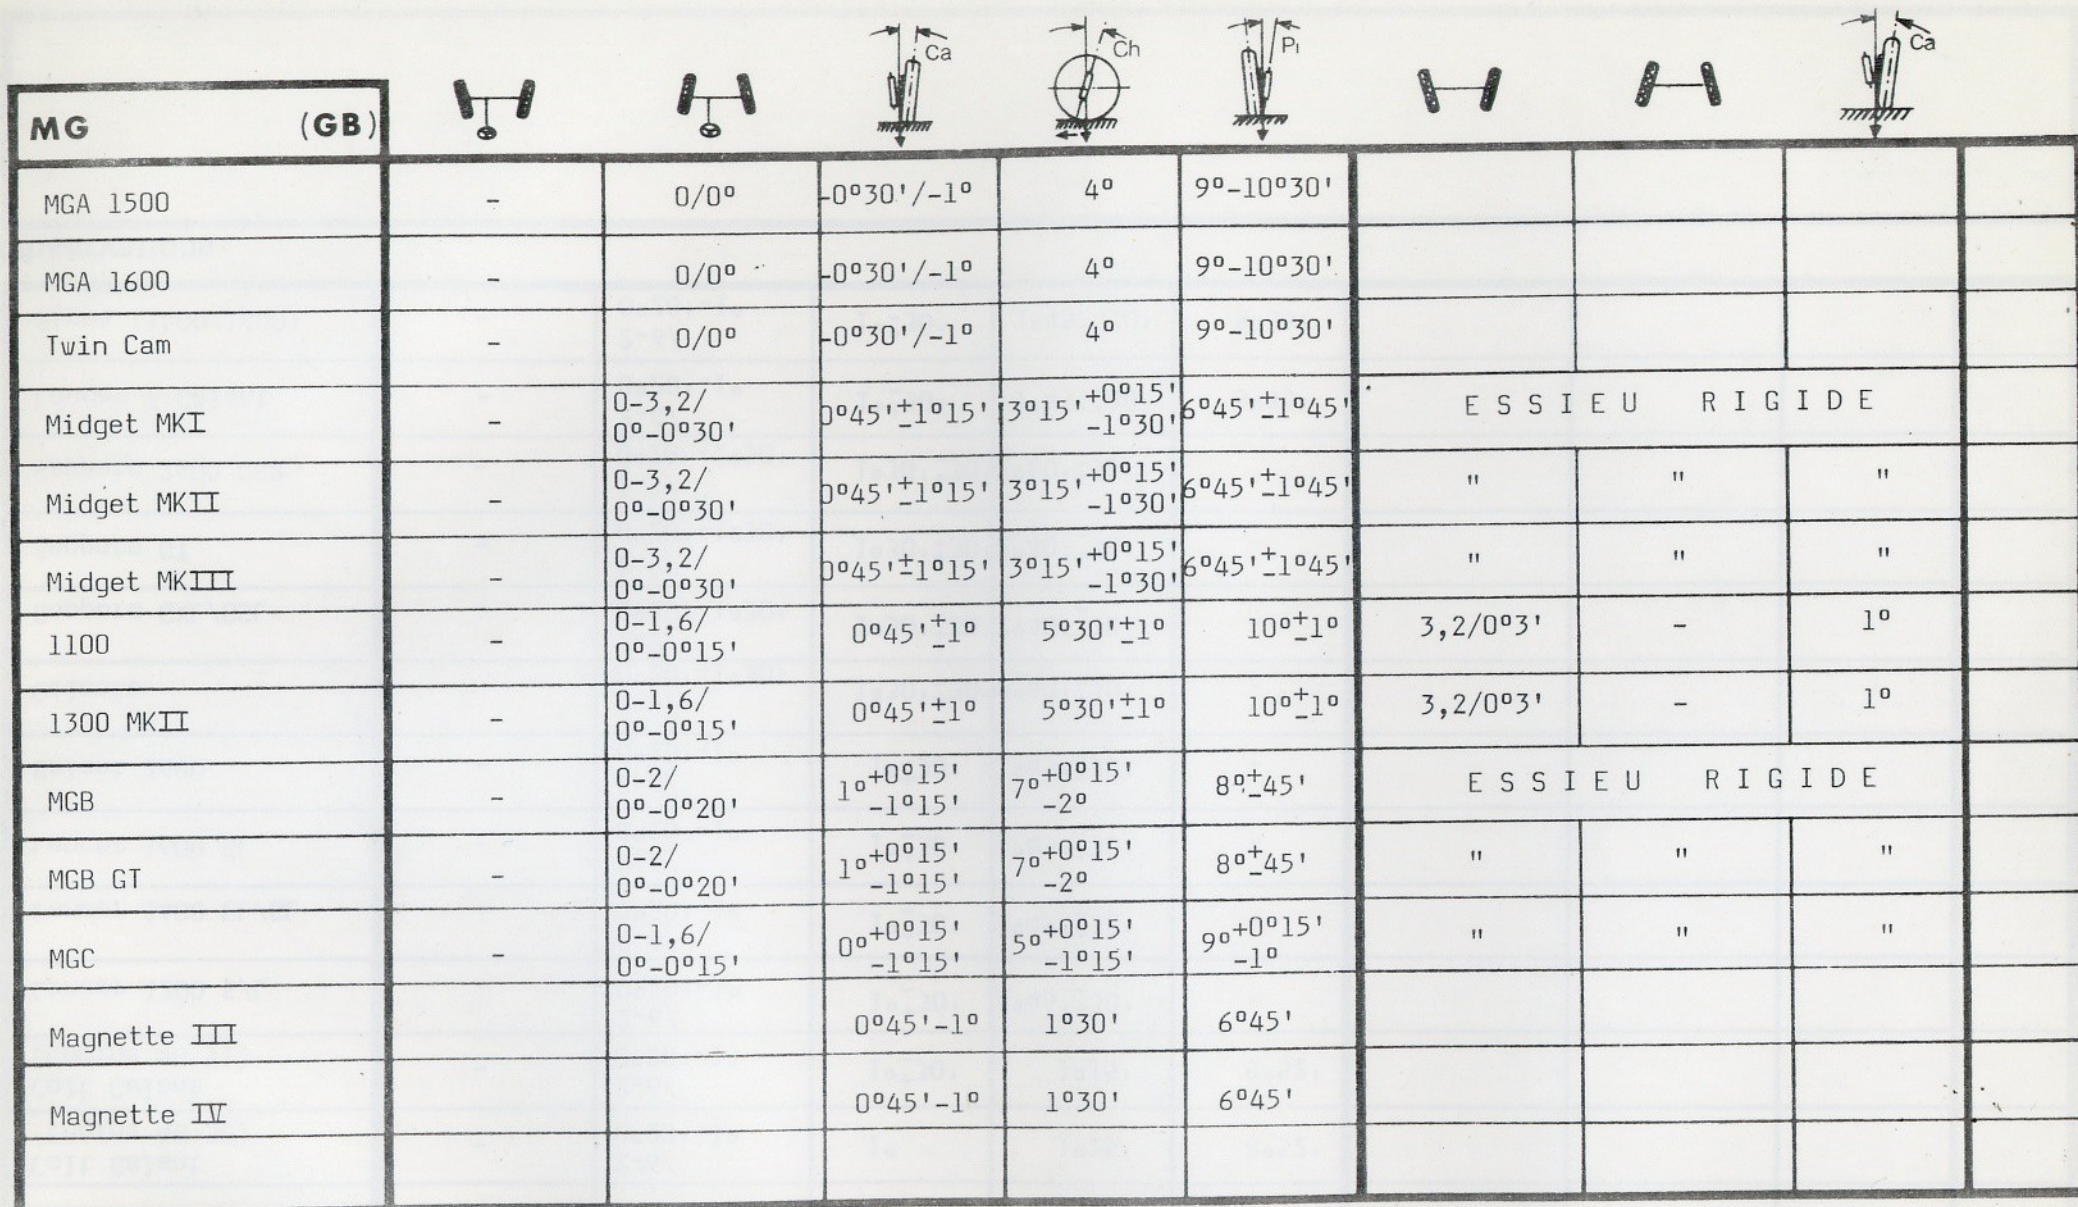 Ca Ch Pi Ca
MG (GB)
MGA 1500 - 0/0° -0°30'/-1° 4° 9°-10°30'
MGA 1600 - 0/0° -0°30'/-1° 4° 9°-10°30'
Twin Cam - 0/0° -0°30'/-1° 4° 9°-10°30'
Midget MKI - 0-3,2/ 0°-0°30' 0°45'±1°15' 3°15'+0°15' -1°30' 6°45'±1°45' ESSIEU RIGIDE
Midget MKII - 0-3,2/ 0°-0°30' 0°45'±1°15' 3°15'+0°15' -1°30' 6°45'±1°45' " " "
Midget MKIII - 0-3,2/ 0°-0°30' 0°45'±1°15' 3°15'+0°15' -1°30' 6°45'±1°45' " " "
1100 - 0-1,6/ 0°-0°15' 0°45'±1° 5°30'±1° 10°±1° 3,2/0°3' - 1°
1300 MKII - 0-1,6/ 0°-0°15' 0°45'±1° 5°30'±1° 10°±1° 3,2/0°3' - 1°
MGB - 0-2/ 0°-0°20' 1°+0°15' -1°15' 7°+0°15' -2° 8°±45' ESSIEU RIGIDE
MGB GT - 0-2/ 0°-0°20' 1°+0°15' -1°15' 7°+0°15' -2° 8°±45' " " "
MGC - 0-1,6/ 0°-0°15' 0°+0°15' -1°15' 5°+0°15' -1°15' 9°+0°15' -1° " " "
Magnette III 0°45'-1° 1°30' 6°45'
Magnette IV 0°45'-1° 1°30' 6°45'